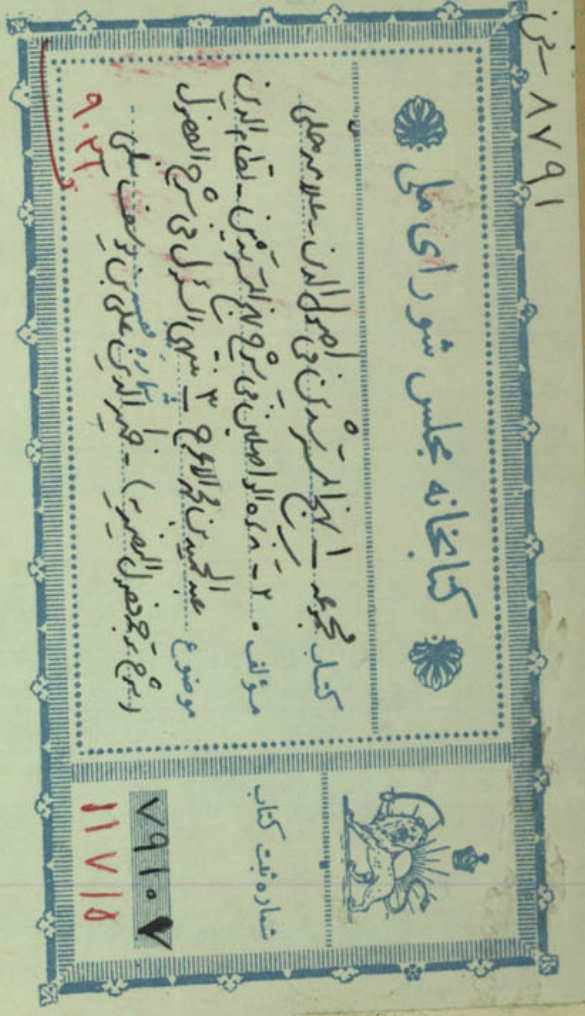 ۸۷۹۱ - خ
کتابخانه مجلس شورای ملی
کتاب مجموعه - ۱ نهج المسترشدین فی اصول الدین - علامه حلی
مؤلف ۲ - تذکرة الواصلین فی شرح نهج المسترشدین - نظام الدین
موضوع عبدالحمید بن محمد الاعرج ۳ - منتهی السؤول فی شرح الفصول
(شرح ترجمه فصول نصیریه) - ظهیر الدین علی بن یوسف نیلی
۹۰۲۶
شماره ثبت کتاب
۷۹۱۰۷
۱۱۷۱۵